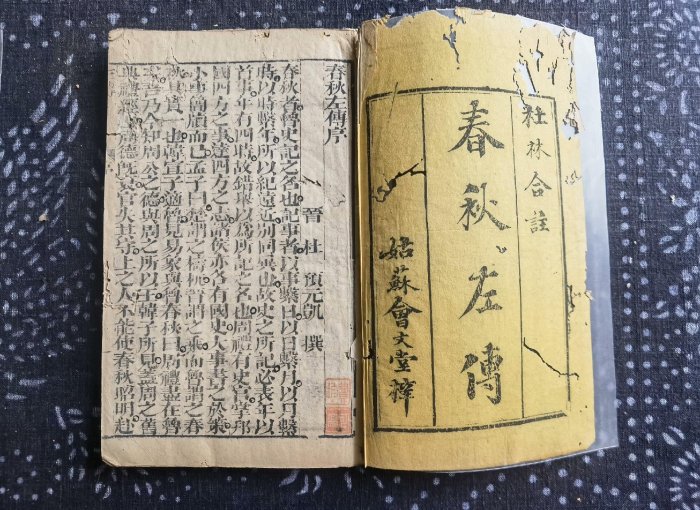 杜林合註
春秋左傳
姑蘇會文堂梓
春秋左傳序
晉 杜 預元凱 撰
春秋者魯史記之名也記事者以事繫日以日繫月以月繫
時以時繫年所以紀遠近別同異也故史之所記必表年以
首事年有四時故錯舉以為所記之名也周禮有史官掌邦
國四方之事達四方之志諸侯亦各有國史大事書之於策
小事簡牘而已孟子曰楚謂之檮杌晉謂之乘而魯謂之春
秋其實一也韓宣子適魯見易象與魯春秋曰周禮盡在魯
矣吾乃今知周公之德與周之所以王韓子所見蓋周之舊
典禮經也周德既衰官失其守上之人不能使春秋昭明赴